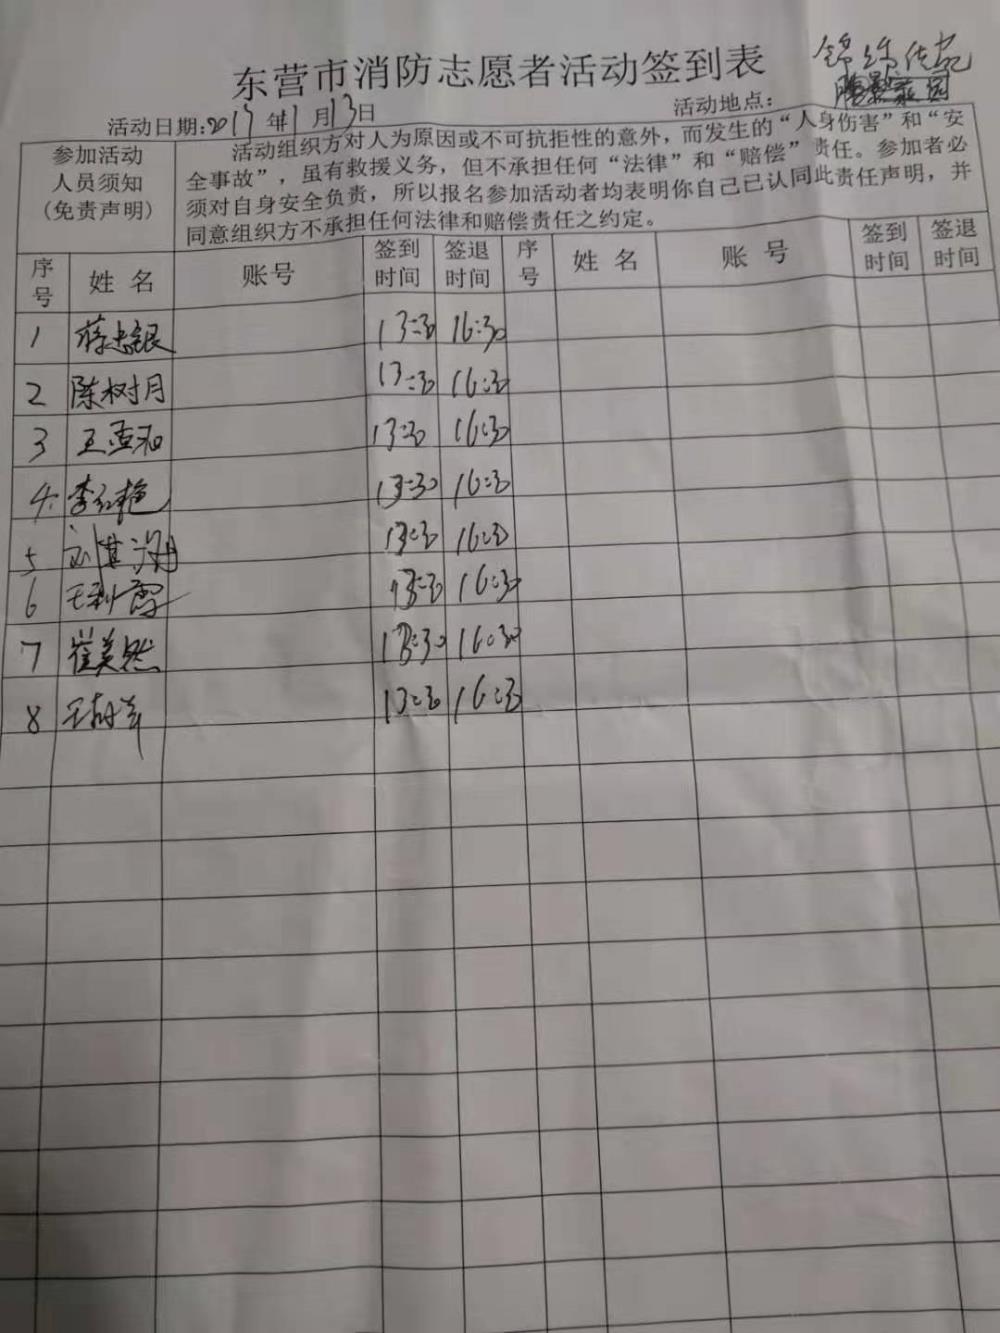 东营市消防志愿者活动签到表
锦绣佳苑
活动日期: 年1月13日 活动地点:
参加活动人员须知(免责声明)
活动组织方对人为原因或不可抗拒性的意外，而发生的“人身伤害”和“安
全事故”，虽有救援义务，但不承担任何“法律”和“赔偿”责任。参加者必
须对自身安全负责，所以报名参加活动者均表明你自己已认同此责任声明，并
同意组织方不承担任何法律和赔偿责任之约定。
序号 姓名 账号 签到时间 签退时间 序号 姓名 账号 签到时间 签退时间
1 蒋忠银 13:30 16:30
2 陈树月 13:30 16:30
3 王孟 13:30 16:30
4 李红艳 13:30 16:30
5 刘其 13:30 16:30
6 王利霞 13:30 16:30
7 崔美然 13:30 16:30
8 王 13:30 16:30